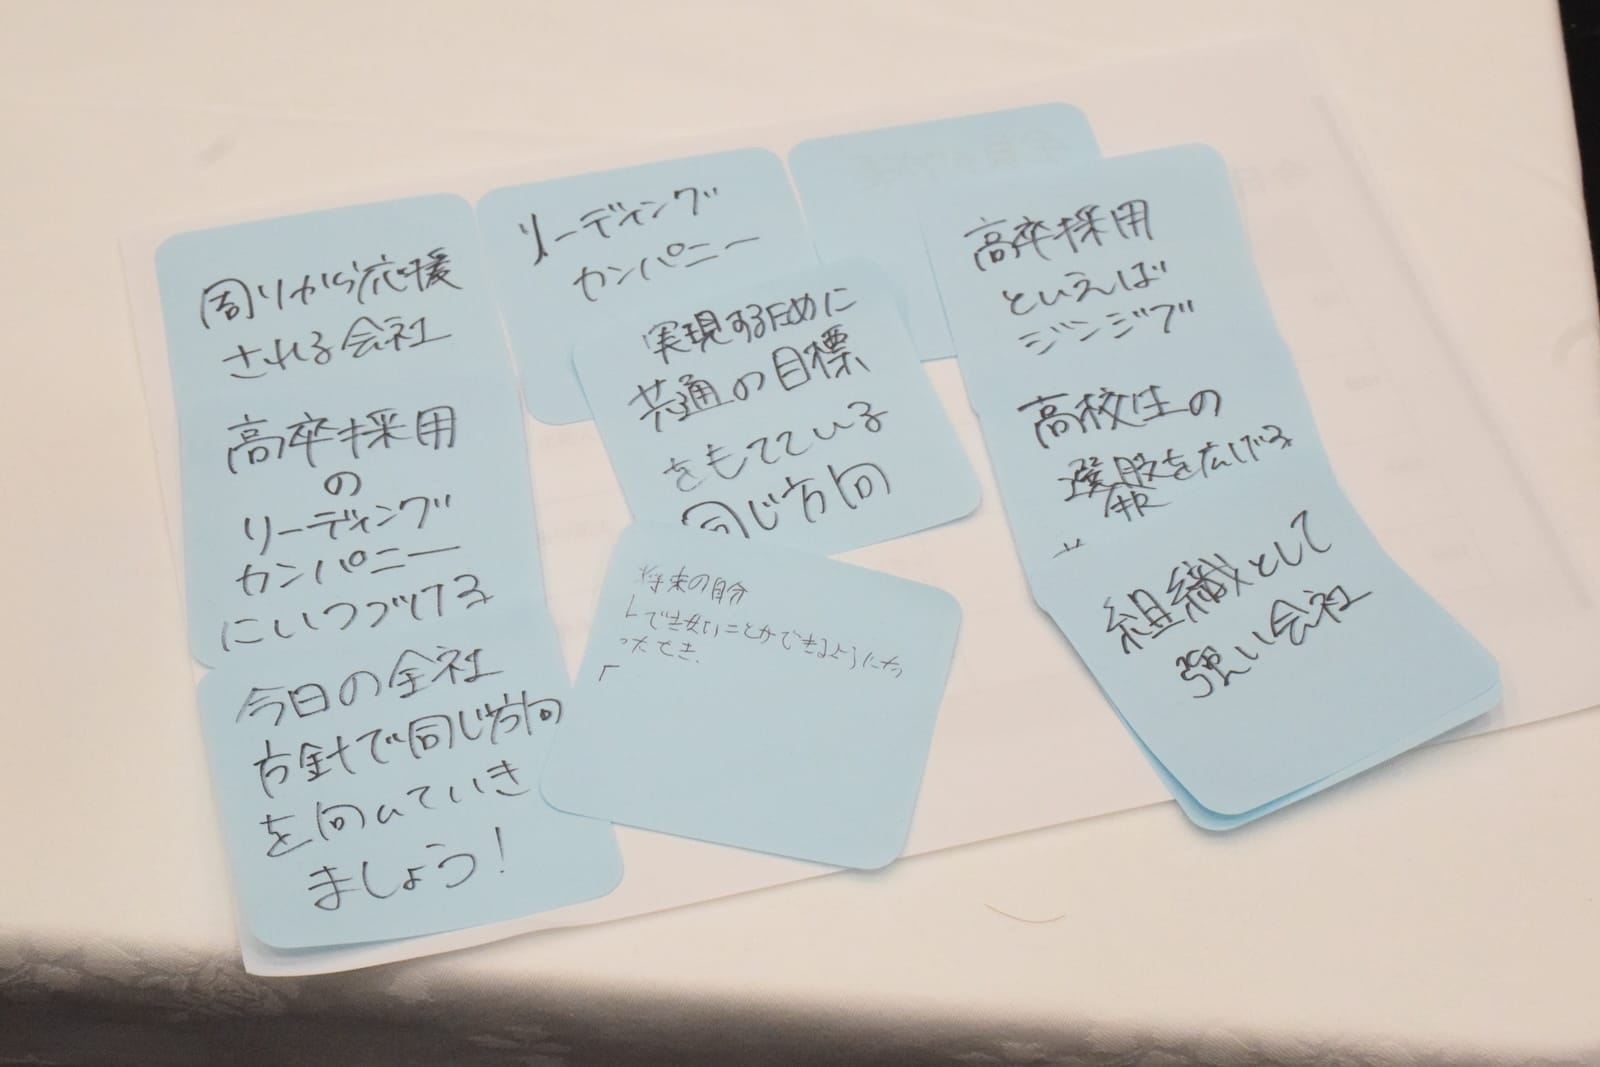 周りから応援
される会社
高卒採用
の
リーディング
カンパニー
にいつづける
今日の全社
方針で同じ方向
を向いていき
ましょう!
リーディング
カンパニー
実現するために
共通の目標
をもてている
同じ方向
将来の自分
できないことができるようにな
ったとき、
高卒採用
といえば
ジンジブ
高校生の
選択を広げる
組織として
強い会社